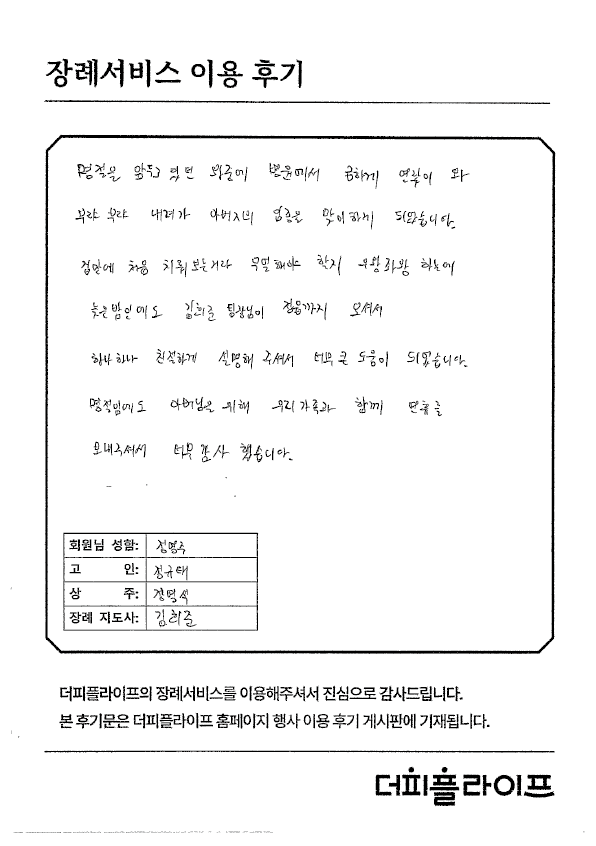 장례서비스 이용 후기
명절을 앞두고 있던 와중에 병원에서 급하게 연락이 와
부랴 부랴 내려가 아버지의 임종을 맞이하게 되었습니다.
겁안에 처음 치뤄보는거라 무얼해야 할지 우왕좌왕 하는데
늦은밤인데도 김희준 팀장님이 정읍까지 오셔서
하나하나 친절하게 설명해 주셔서 너무 큰 도움이 되었습니다.
명절임에도 아버님을 위해 우리가족과 함께 연휴를
보내주셔서 너무 감사 했습니다.
회원님 성함: 정명주
고 인: 정규태
상 주: 정명석
장례 지도사: 김희준
더피플라이프의 장례서비스를 이용해주셔서 진심으로 감사드립니다.
본 후기문은 더피플라이프 홈페이지 행사 이용 후기 게시판에 기재됩니다.
더피플라이프